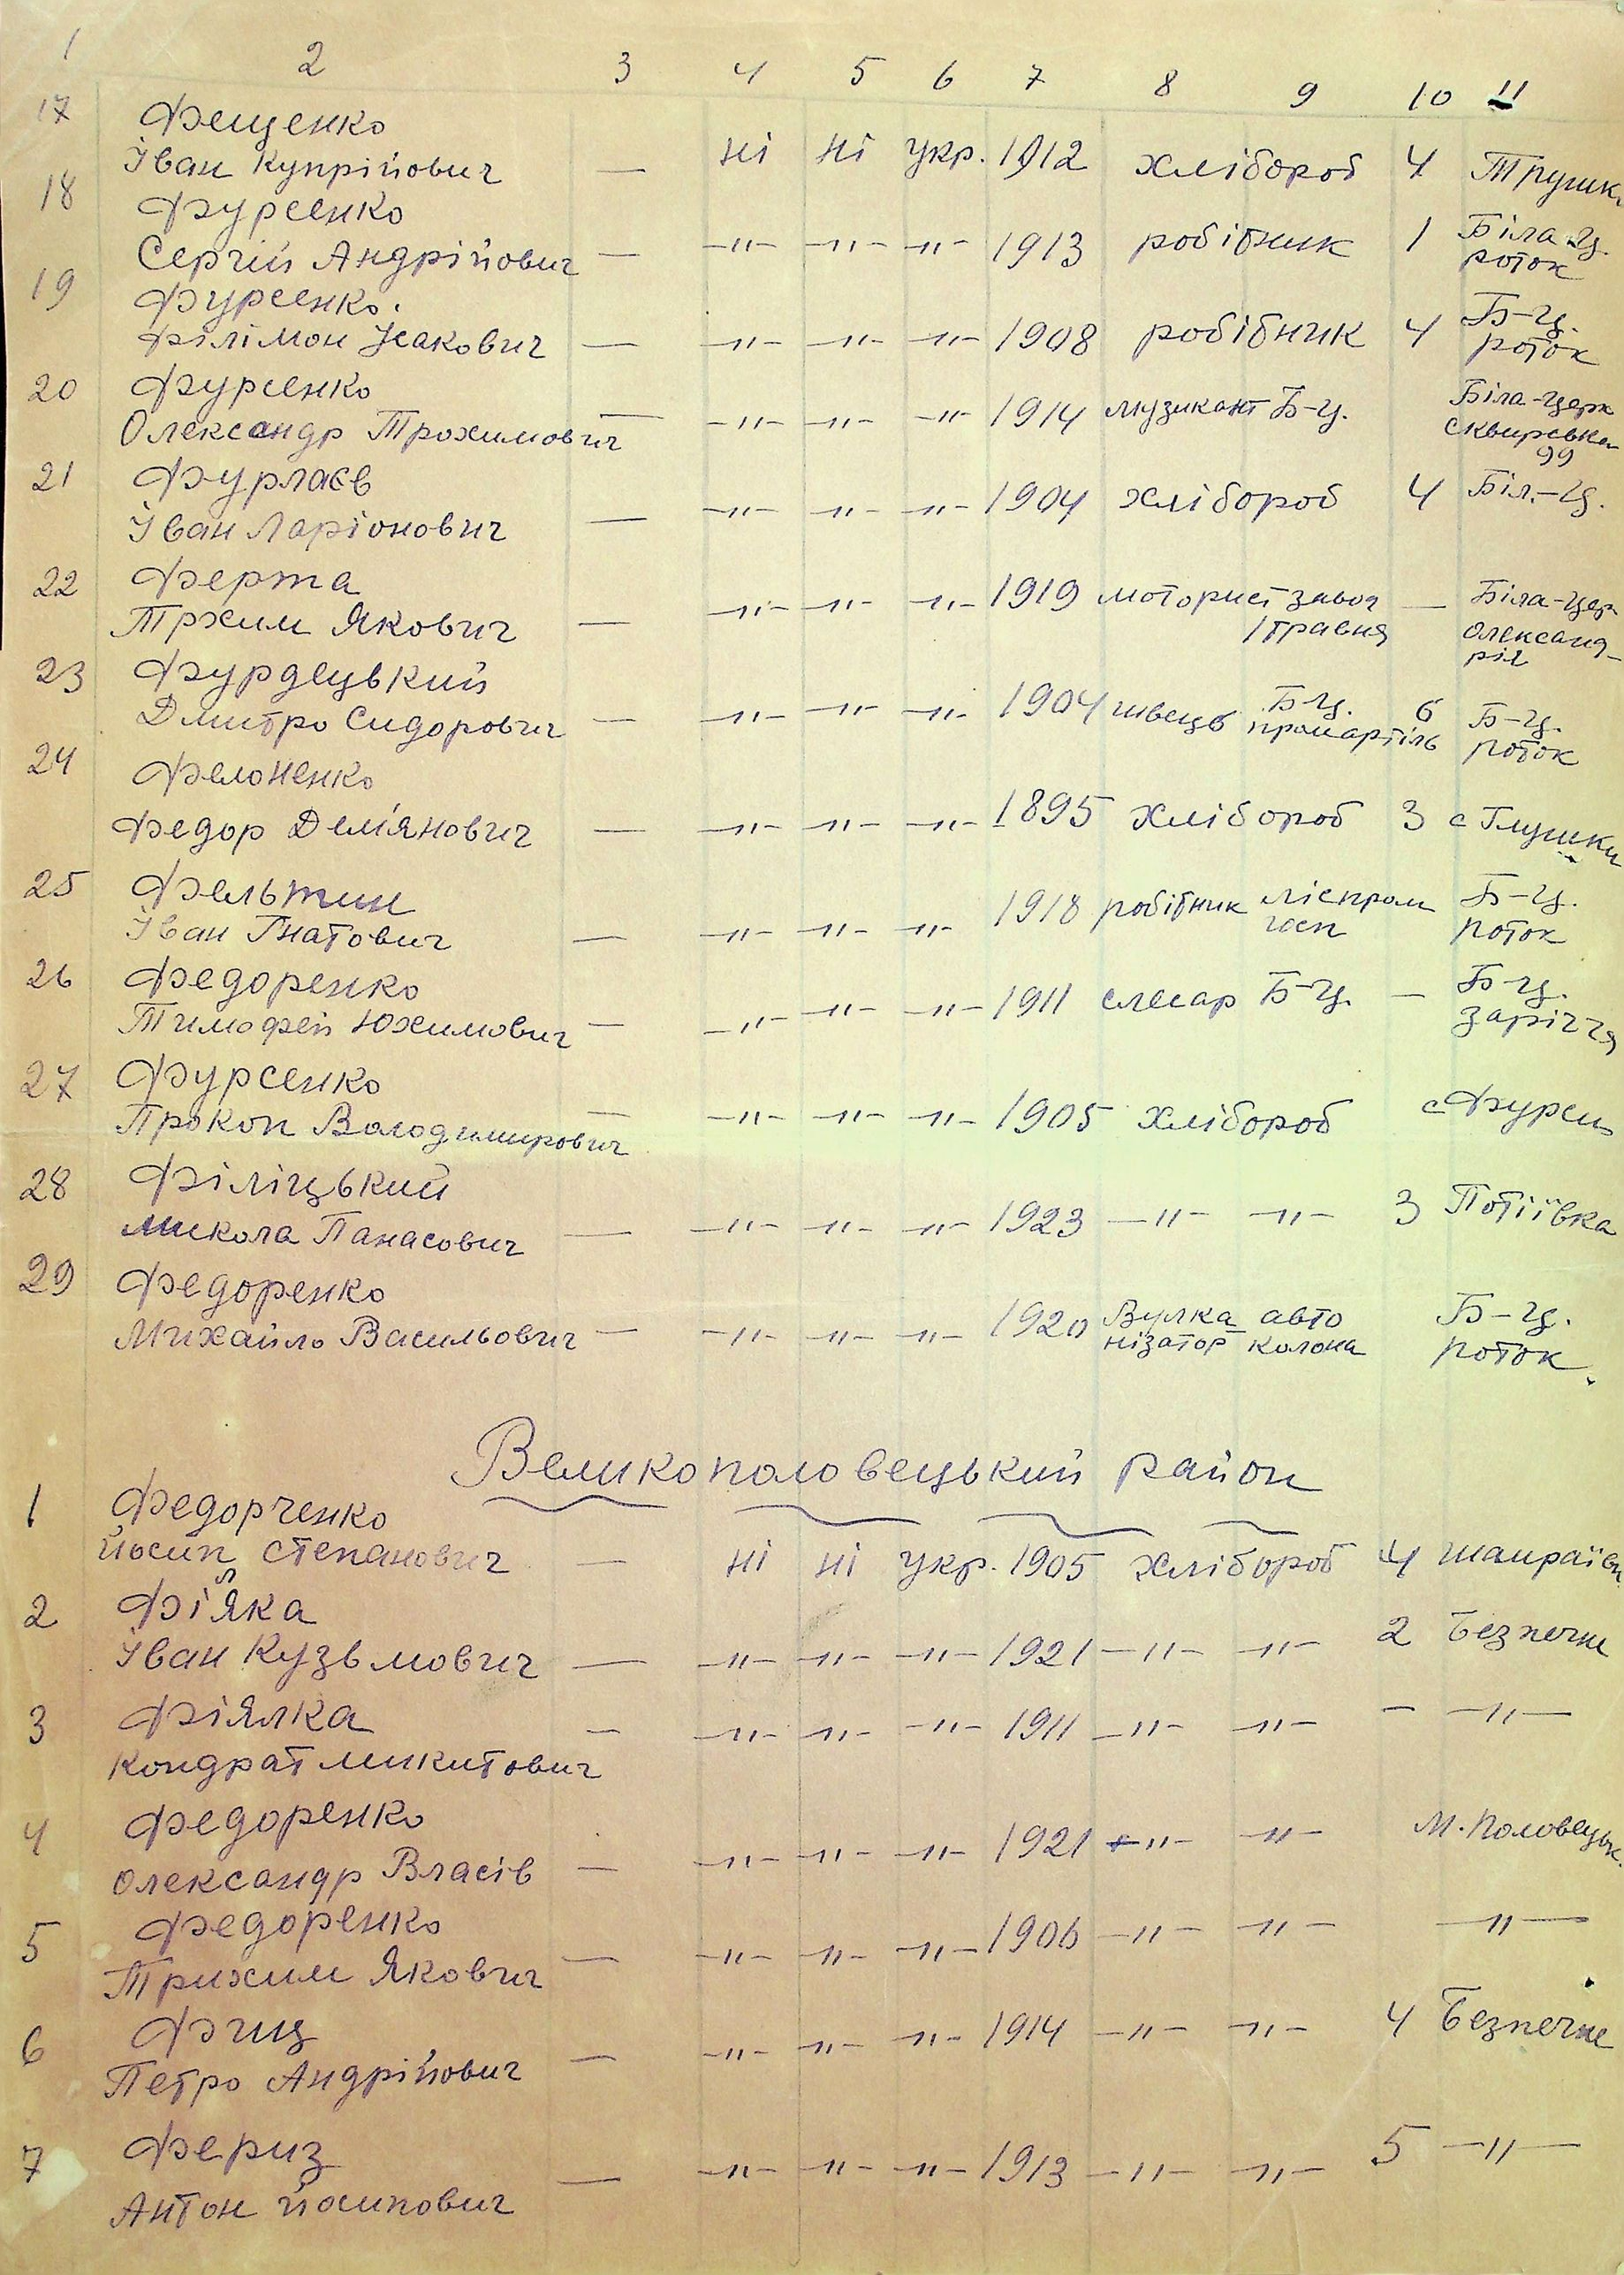 1 2 3 4 5 6 7 8 9 10 11
17 Фещенко
Іван Купрійович — ні ні укр. 1912 хлібороб 4 Трушк
18 Фурсенко
Сергій Андрійович — -"- -"- -"- 1913 робітник 1 Біла-Ц. роток
19 Фурсенко.
Філімон Ісакович — -"- -"- -"- 1908 робітник 4 Б-Ц. роток
20 Фурсенко
Олександр Трохимович — -"- -"- -"- 1914 музикант Б-Ц. Біла-Церк сквирська 99
21 Фурлаєв
Іван Ларіонович — -"- -"- -"- 1904 хлібороб 4 Біл.-Ц.
22 Ферта
Трхим Якович — -"- -"- -"- 1919 моторист завод 1 травня — Біла-Цер Олександ-рія
23 Фурдецький
Дмитро Сидорович — -"- -"- -"- 1904 швець Б-Ц. промартіль 6 Б-Ц. роток
24 Фелоненко
Федор Дем'янович — -"- -"- -"- 1895 хлібороб 3 с Глушки
25 Фельтин
Іван Гнатович — -"- -"- -"- 1918 робітник ліспром госп Б-Ц. роток
26 Федоренко
Тимофей Юхимович — -"- -"- -"- 1911 слесар Б-Ц. — Б-Ц. заріччя
27 Фурсенко
Прокоп Володимирович — -"- -"- -"- 1905 хлібороб с Фурси
28 Філіцький
Микола Панасович — -"- -"- -"- 1923 -"- -"- 3 Потіївка
29 Федоренко
Михайло Васильович — -"- -"- -"- 1920 Вулка-нізатор авто колона Б-Ц. роток.
Великополовецький район
1 Федорченко
Йосип Степанович — ні ні укр. 1905 хлібороб 4 Шамраївк
2 Фіялка
Іван Кузьмович — -"- -"- -"- 1921 -"- -"- 2 Безпечне
3 Фіялка
Кондрат Микитович — -"- -"- -"- 1911 -"- -"- — -"-
4 Федоренко
Олександр Власів — -"- -"- -"- 1921 -"- -"- М. Половецьк.
5 Федоренко
Трихим Якович — -"- -"- -"- 1906 -"- -"- -"-
6 Фіщ
Петро Андрійович — -"- -"- -"- 1914 -"- -"- 4 Безпечне
7 Фериз
Антон Йосипович — -"- -"- -"- 1913 -"- -"- 5 -"-